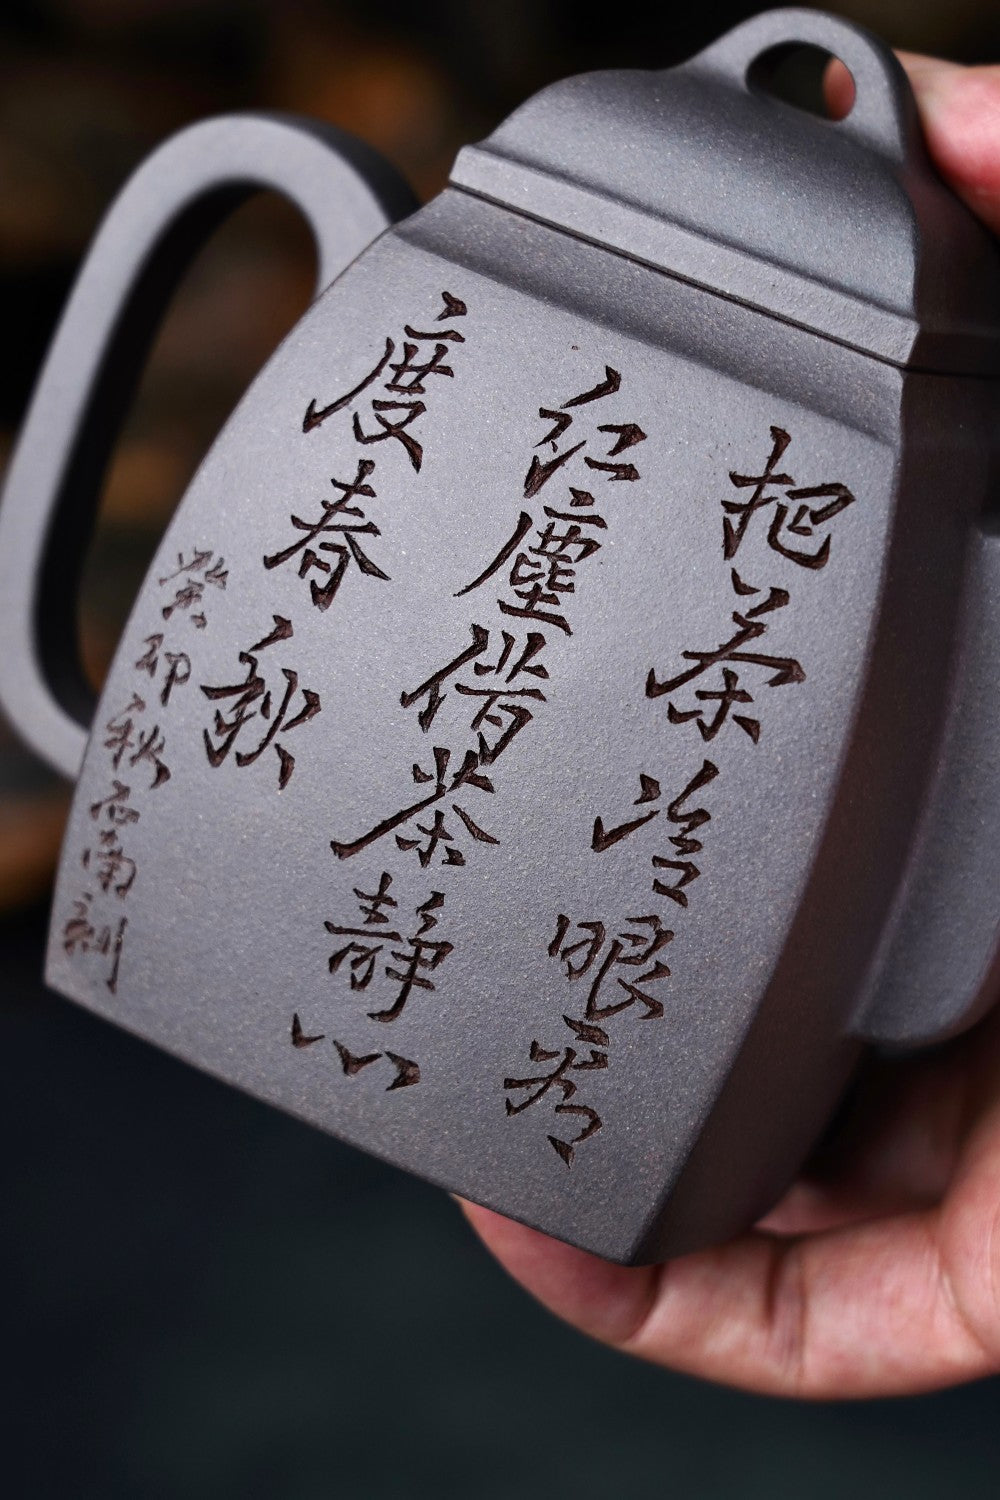 把茶冷眼看
红塵借茶静心
度春秋
癸卯秋雲南刻